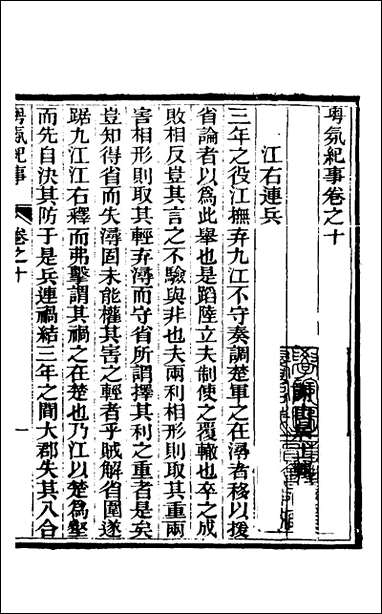 粤氛紀事卷之十
江右連兵
三年之役江撫弃九江不守奏調楚軍之在潯者移以援
省論者以為此舉也是蹈陸立夫制使之覆轍也卒之成
敗相反豈其言之不驗與非也夫兩利相形則取其重兩
害相形則取其輕弃潯而守省所謂擇其利之重者是矣
豈知得省而失潯固未能權其害之輕者乎賊解省圍遂
踞九江江右釋而弗擊謂其禍之在楚也乃江以楚為壑
而先自決其防于是兵連禍結三年之間大郡失其八合
粤氛紀事
卷之十
一